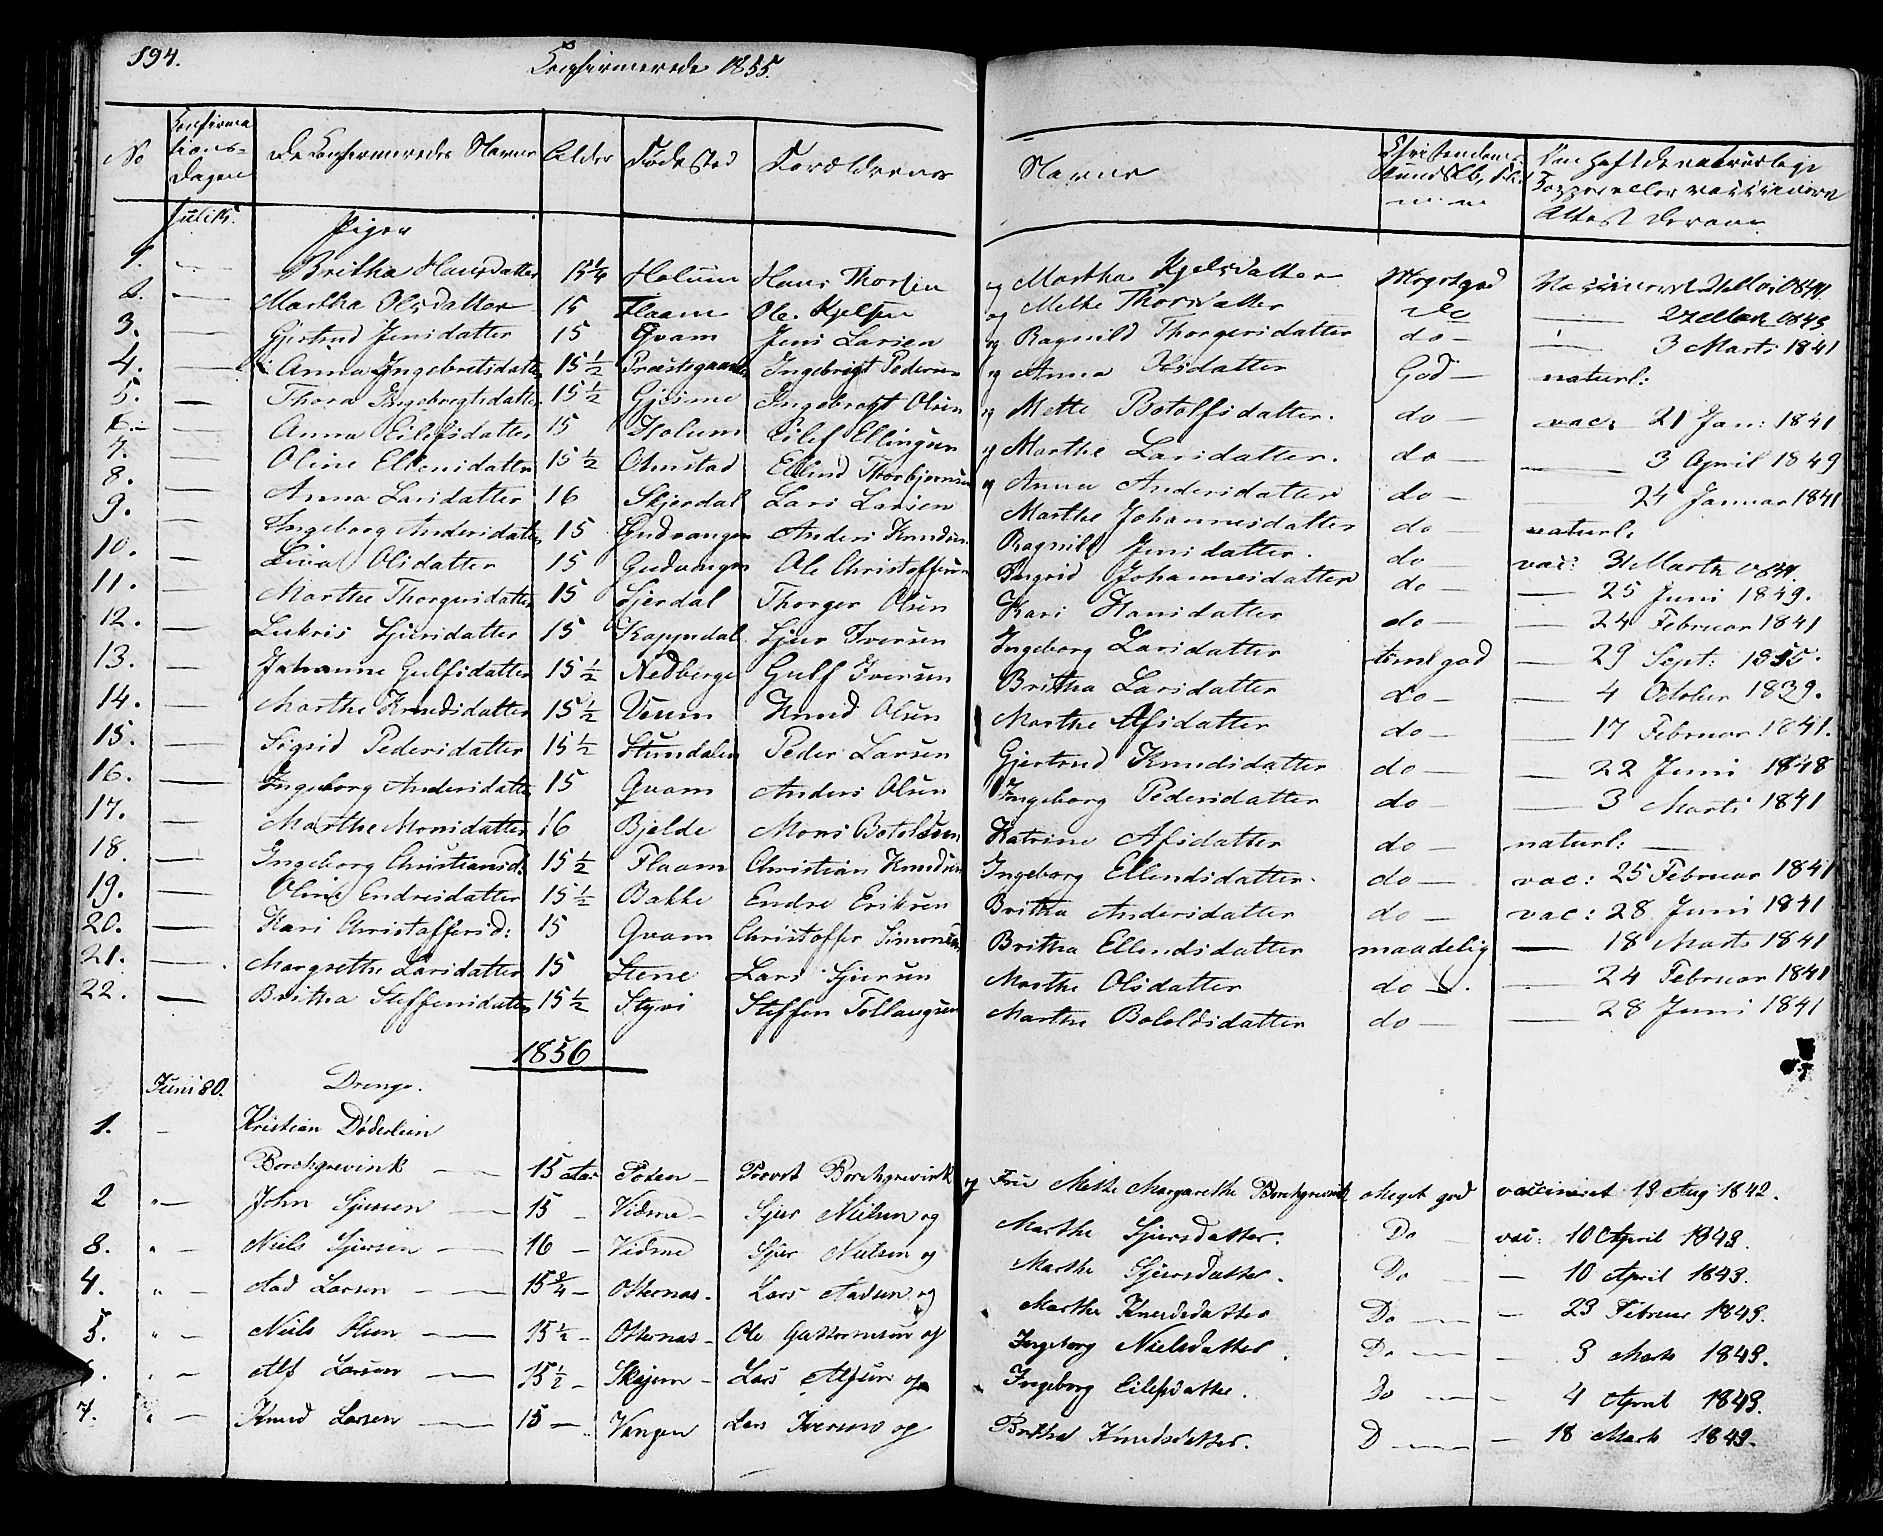 194.
Confirmerede 1855.
No Confirmations-Dagen De Confirmeredes Navne Alder Fødested Forældrenes Navne Christendoms Kundskb, Van haft de naturlige Kopper eller vaccineret Attest derom
Juli 15. Piger
1. — Britha Hansdatter 15 1/4 Holum Hans Thorsen og Martha Kjelsdatter Megetgod Vaccineret
2. — Martha Olsdatter 15 Flaam Ole Kjelsen og Mette Thorsdatter do — 1843
3. — Gjertrud Jensdatter 15 Qvam Jens Larsen og Ragnild Thorgersdatter do — — 3 Marts 1841
4. — Anna Ingebretsdatter 15 1/2 Præstegaarden Ingebrigt Pedersen og Anna Olsdatter God — naturl:
5. — Thora Ingebregtsdatter 15 1/2 Gjesme Ingebregt Olsen og Mette Botolfsdatter. do — vac: 21 Jan: 1841
6. — Anna Eilefsdatter 15 Holum Eilef Ellingsen og Marthe Larsdatter. do — — 3 April 1849
7. — Oline Ellensdatter 15 1/2 Onstad Ellend Thorbjørnsen og Anna Andersdatter do — — 24 Januar 1841
8. — Anna Larsdatter 16 Skjerdal Lars Larsen Marthe Johannesdatter do — naturl:
9. — Ingeborg Andersdatter 15 Gudvangen Anders Knudsen Ragnild Jensdatter. do vac: 31 Marts
10. — Olsdatter 15 Gudvangen Ole Christoffersen Ingrid Johannesdatter do — — 25 Juni 1849.
11. — Marthe Thorgersdatter 15 Sjerdal Thorger Olsen Kari Hansdatter do — — 24 Februar 1841
12. — Lukris Sjursdatter 15 Kappadal Sjur Iversen Ingeborg Larsdatter temlgod — 29 Sept: 1855.
13. — Johanne Gulfsdatter 15 1/2 Nedberge Gulf Iversen Britha Larsdatter do — — 4 October 1839.
14. — Marthe Knudsdatter 15 1/2 Veum Knud Olsen Marthe Afsdatter do — — 17 Februar 1841.
15. — Sigrid Pedersdatter 15 1/2 Stundalen Peder Larsen Gjertrud Knudsdatter do — — 22 Juni 1848
16. — Ingeborg Andersdatter 15 Qvam Anders Olsen Ingeborg Pedersdatter do — — 3 Marts 1841
17. — Marthe Monsdatter 16 Bjelde Mons Botolfsen Katrine Afsdatter do — naturl: —
18. — Ingeborg Christiansd: 15 1/2 Flaam Christian Knudsen Ingeborg Ellendsdatter. do — vac: 25 Februar 1841
19. — Oline Endresdatter 15 1/2 Bakke Endre Eriksen Britha Andersdatter do — vac: 28 Juni 1841
20. — Kari Christoffersd: 15 Qvam Christoffer Simonsen Britha Ellendsdatter maadelig — 18 Marts 1841
21. — Margrethe Larsdatter 15 Stene Lars Sjursen Marthe Olsdatter do — — 24 Februar 1841
22. — Britha Steffensdatter 15 1/2 Styvi Steffen Tollaugsen Marthe Botolfsdatter do — — 28 Juni 1841
1856
Juni 30. Drenge.
1. — Kristian Døderlein
Borchgrevink — 15 Aar Provst Borchgrevink og Fru Mette Margarethe Borchgrevink Meget god vaccineret 13 Aug 1842.
2 " — John Sjursen — 15 — Vidme — Sjur Nielsen og Marthe Sjursdatter. Do — vac: 10 April 1843.
3. " — Niels Sjursen — 16 — Vidme Sjur Nielsen og Marthe Sjursdatter. Do — — 10 April 1843.
4. " — Aad Larsen — 15 3/4 — Otternæs. Lars Aadsen og Marthe Knudsdatter Do — — 23 Februar 1843.
5. " — Niels Olsen — 15 1/2 — Otternæs — Ole Guttormsen og Ingeborg Nielsdatter Do — — 3 Marts 1843.
6. " — Alf Larsen — 15 1/2 — Skjern — Lars Alfsen og Ingeborg Eilefsdatter. Do — — 4 April 1843.
7. " — Knud Larsen — 15 — Vangen Lars Iversen og Britha Knudsdatter. D — — 18 Marts 1843.